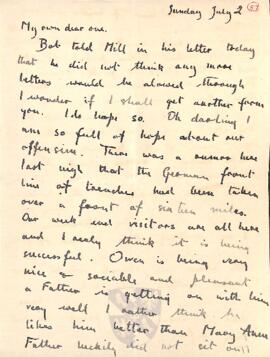 Sunday July 2
(51)
My own dear one.
Bob told Mill in his letter today
that he did not think any more
letters would be allowed through
I wonder if I shall get another from
you. I do hope so. Oh darling I
am so full of hope about our
offensive. There was a rumour here
last night that the German front
line of trenches had been taken
over a front of sixteen miles.
Our week end visitors are all here
and I really think it is being
successful. Owen is being very
nice & sociable and pleasant
& Father is getting on with him
very well I rather think he
likes him better than Mary Anne
Father luckily did not sit